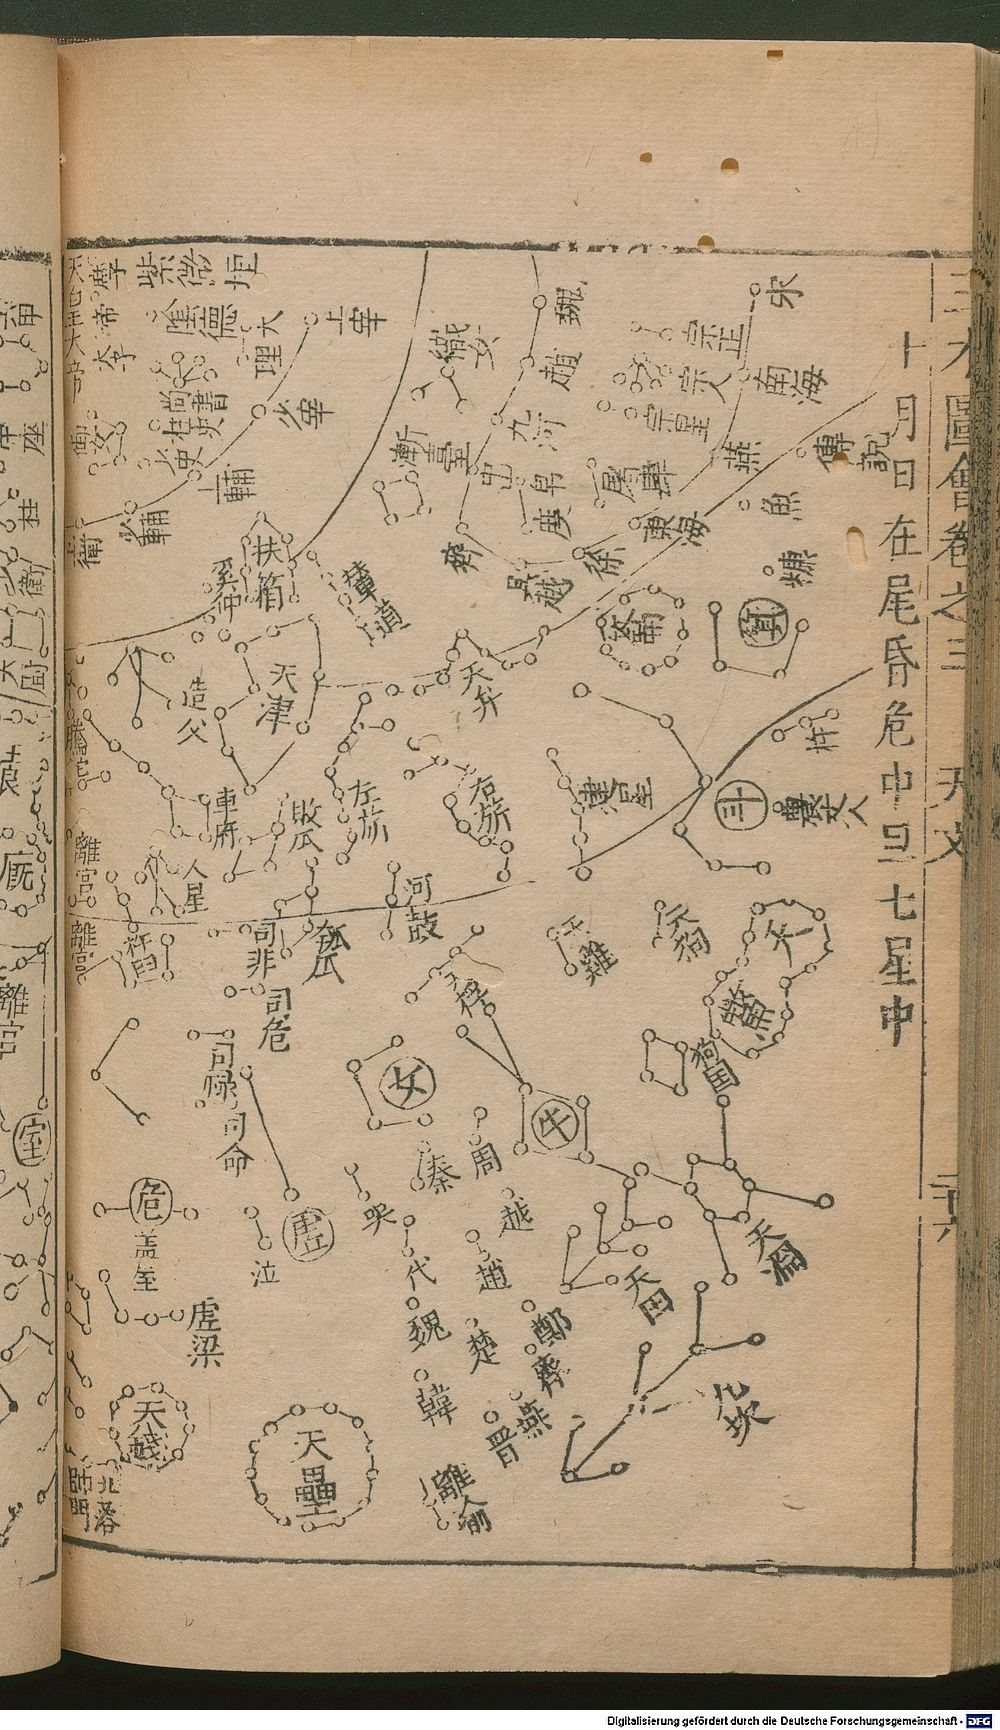 三才圖會卷之三
天文
十月日在尾昏危中旦七星中
宋
南海
燕
傅說
魚
糠
箕
杵
農丈人
斗
宗正
宗人
宗星
屠肆
東海
徐
魏
趙
九河
中山
帛度
吳越
齊
織女
漸臺
輦道
天弁
右旗
左旗
建星
河鼓
天雞
天淵
天田
九坎
狗國
牛
女
周
秦
越
趙
代
魏
楚
鄭
韓
燕
晉
離瑜
紫微垣
天皇大帝
陰德
大理
上宰
少宰
尚書
柱史
女史
御女
上輔
少輔
衛
扶筐
奚仲
天津
造父
螣蛇
車府
人星
敗瓜
瓠瓜
離宮
離宮
杵臼
司非
司危
司祿
司命
哭
泣
虛
危
蓋屋
虛梁
天錢
天壘
北落
師門
座
柱
衛
廐
離宮
室
Digitalisierung gefördert durch die Deutsche Forschungsgemeinschaft - DFG